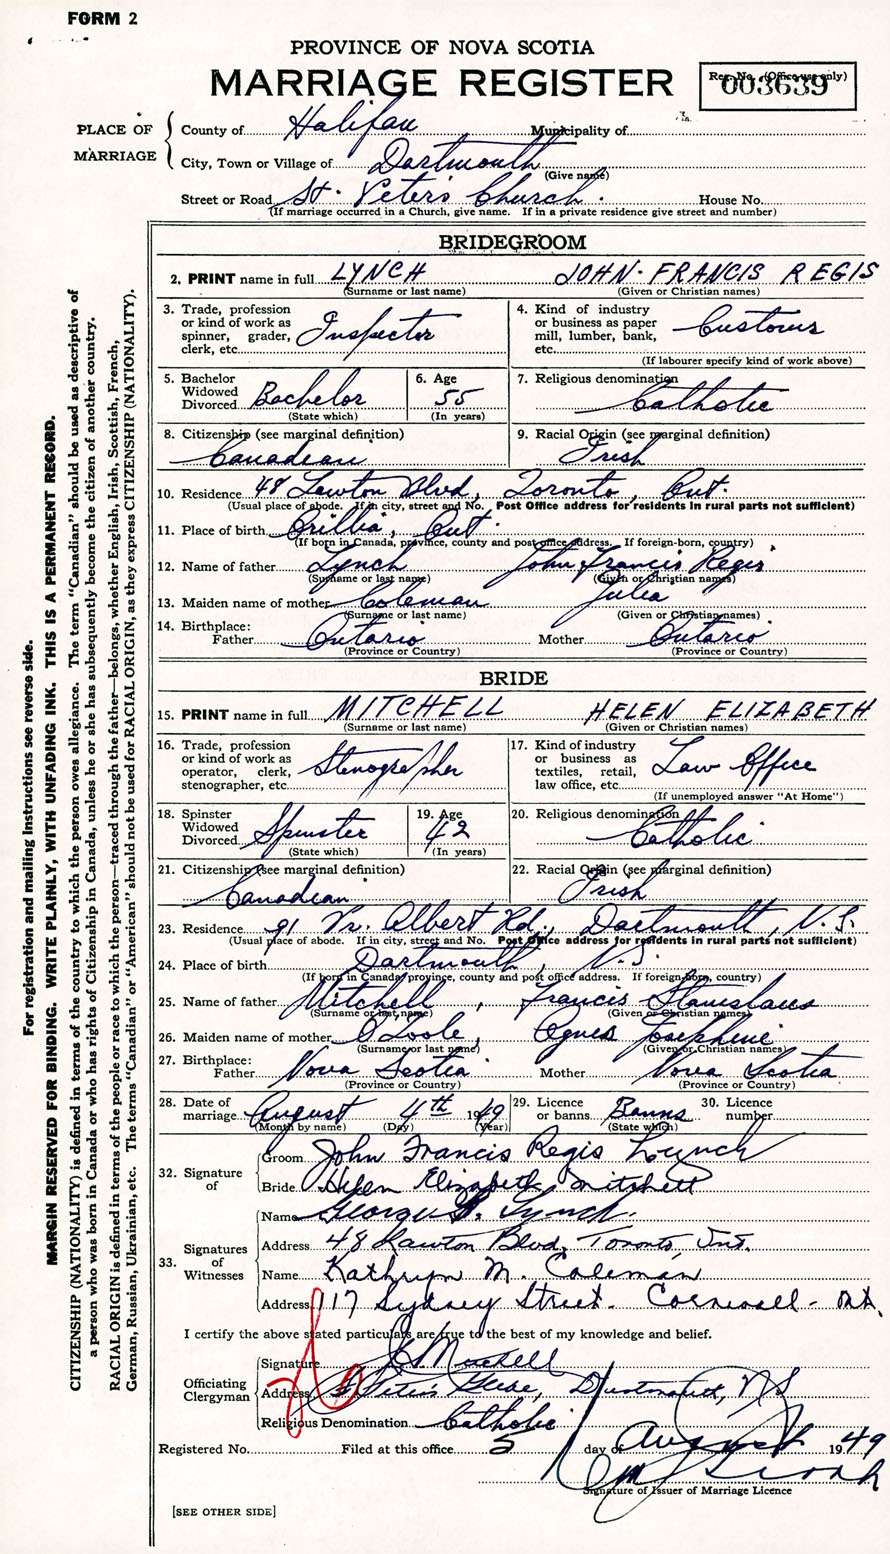 FORM 2
PROVINCE OF NOVA SCOTIA
MARRIAGE REGISTER
Reg. No. (Office use only)
003639
PLACE OF MARRIAGE
County of Halifax Municipality of
City, Town or Village of Dartmouth
(Give name)
Street or Road St. Peter's Church. House No.
(If marriage occurred in a Church, give name. If in a private residence give street and number)
BRIDEGROOM
2. PRINT name in full LYNCH JOHN FRANCIS REGIS
(Surname or last name) (Given or Christian names)
3. Trade, profession or kind of work as spinner, grader, clerk, etc. Inspector
4. Kind of industry or business as paper mill, lumber, bank, etc. Customs
(If labourer specify kind of work above)
5. Bachelor Widowed Divorced Bachelor
(State which)
6. Age 55
(In years)
7. Religious denomination Catholic
8. Citizenship (see marginal definition) Canadian
9. Racial Origin (see marginal definition) Irish
10. Residence 48 Lawton Blvd, Toronto, Ont.
(Usual place of abode. If in city, street and No. Post Office address for residents in rural parts not sufficient)
11. Place of birth Orillia, Ont
(If born in Canada, province, county and post office address. If foreign-born, country)
12. Name of father Lynch John Francis Regis
(Surname or last name) (Given or Christian names)
13. Maiden name of mother Coleman Julia
(Surname or last name) (Given or Christian names)
14. Birthplace:
Father Ontario Mother Ontario
(Province or Country) (Province or Country)
BRIDE
15. PRINT name in full MITCHELL HELEN ELIZABETH
(Surname or last name) (Given or Christian names)
16. Trade, profession or kind of work as operator, clerk, stenographer, etc. Stenographer
17. Kind of industry or business as textiles, retail, law office, etc. Law Office
(If unemployed answer "At Home")
18. Spinster Widowed Divorced Spinster
(State which)
19. Age 42
(In years)
20. Religious denomination Catholic
21. Citizenship (see marginal definition) Canadian
22. Racial Origin (see marginal definition) Irish
23. Residence 91 Pr. Albert Rd., Dartmouth, N.S.
(Usual place of abode. If in city, street and No. Post Office address for residents in rural parts not sufficient)
24. Place of birth Dartmouth, N.S.
(If born in Canada, province, county and post office address. If foreign-born, country)
25. Name of father Mitchell, Francis Stanislaus
(Surname or last name) (Given or Christian names)
26. Maiden name of mother O'Toole, Agnes Josephine
(Surname or last name) (Given or Christian names)
27. Birthplace:
Father Nova Scotia Mother Nova Scotia
(Province or Country) (Province or Country)
28. Date of marriage August 4th 1949
(Month by name) (Day) (Year)
29. Licence or banns Banns
(State which)
30. Licence number
32. Signature of
Groom John Francis Regis Lynch
Bride Helen Elizabeth Mitchell
33. Signatures of Witnesses
Name George Lynch.
Address 48 Lawton Blvd, Toronto, Ont.
Name Kathryn M. Coleman
Address 117 Sydney Street. Cornwall - Ont.
I certify the above stated particulars are true to the best of my knowledge and belief.
Officiating Clergyman
Signature
Address St Peter's Glebe, Dartmouth, NS
Religious Denomination Catholic
Registered No. Filed at this office 5 day of August 1949
Signature of Issuer of Marriage Licence
[SEE OTHER SIDE]
For registration and mailing instructions see reverse side.
MARGIN RESERVED FOR BINDING. WRITE PLAINLY, WITH UNFADING INK. THIS IS A PERMANENT RECORD.
CITIZENSHIP (NATIONALITY) is defined in terms of the country to which the person owes allegiance. The term "Canadian" should be used as descriptive of
a person who was born in Canada or who has rights of Citizenship in Canada, unless he or she has subsequently become the citizen of another country.
RACIAL ORIGIN is defined in terms of the people or race to which the person—traced through the father—belongs, whether English, Irish, Scottish, French,
German, Russian, Ukrainian, etc. The terms "Canadian" or "American" should not be used for RACIAL ORIGIN, as they express CITIZENSHIP (NATIONALITY).